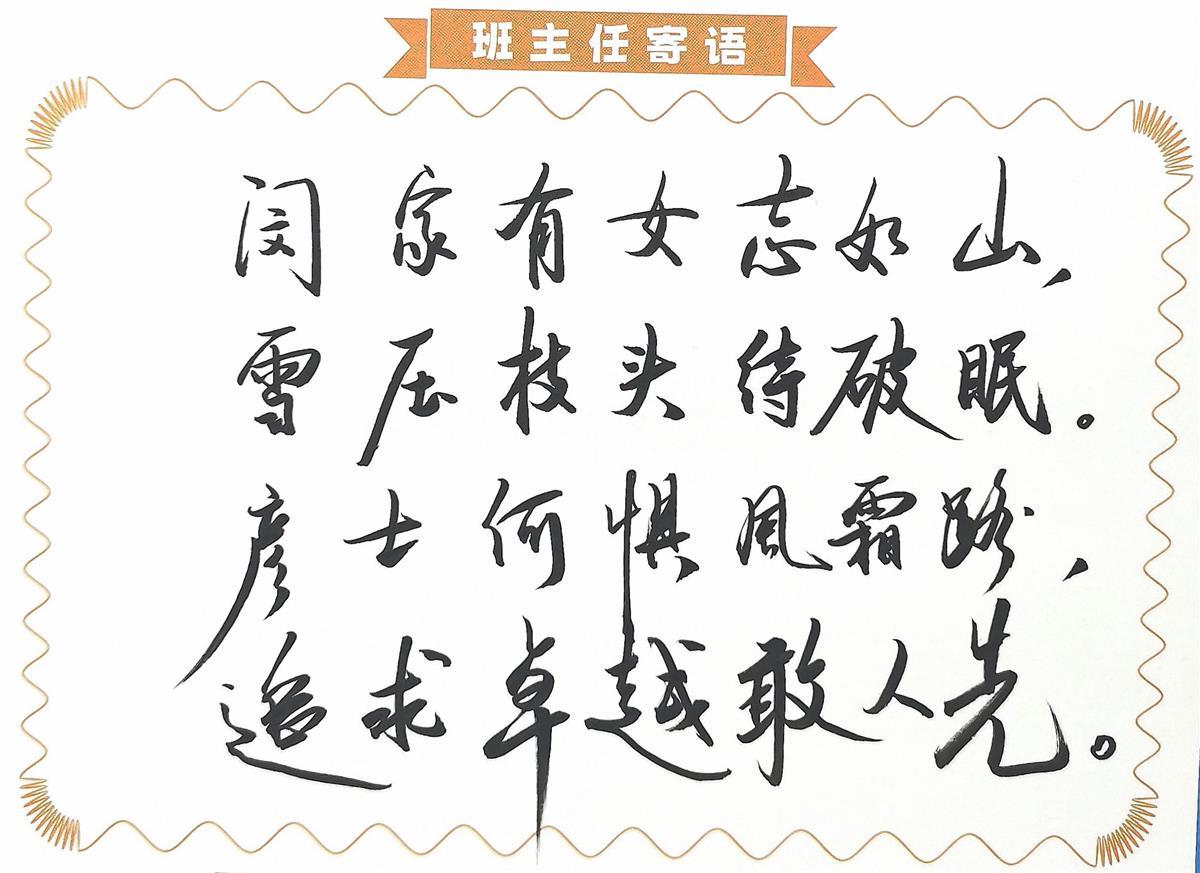 班主任寄语
闫家有女志如山，
雪压枝头待破眠。
彦士何惧风霜路，
追求卓越敢人先。